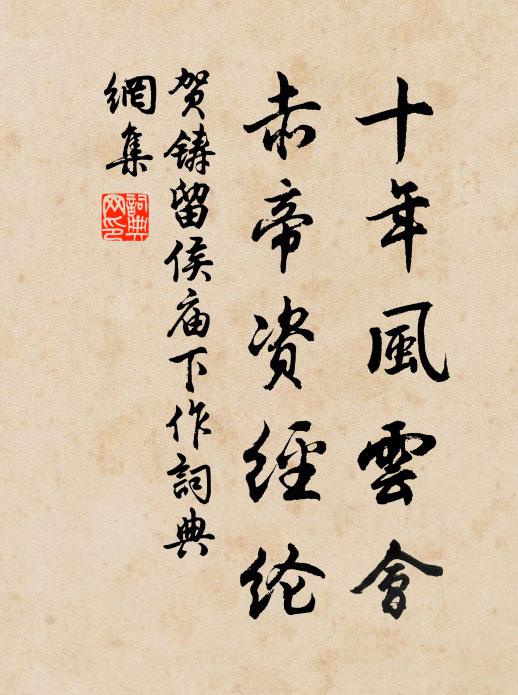 十年風雲會
赤帝资經纶
贺鑄留侯庙下作詞典
網集
詞典
网印